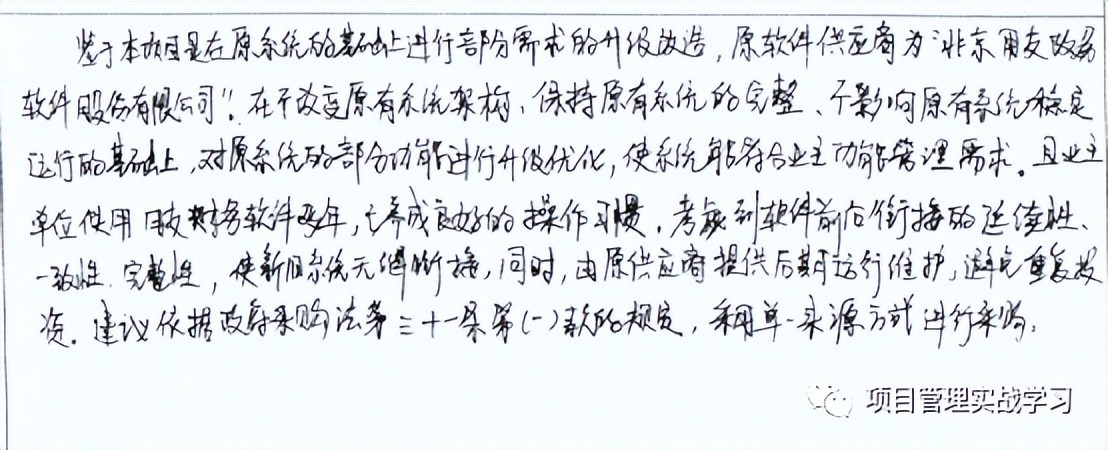 鉴于本项目是在原系统的基础上进行部分需求的升级改造，原软件供应商为“北京用友政务
软件股份有限公司”。在不改变原有系统架构、保持原有系统的完整、不影响原有系统稳定
运行的基础上，对原系统的部分功能进行升级优化，使系统能符合业主功能管理需求。且业主
单位使用用友财务软件多年，已养成良好的操作习惯，考虑到软件前后衔接的延续性、
一致性、完整性，使新旧系统无缝衔接，同时，由原供应商提供后期运行维护，避免重复投
资。建议依据政府采购法第三十一条第（一）款的规定，采用单一来源方式进行采购。
项目管理实战学习